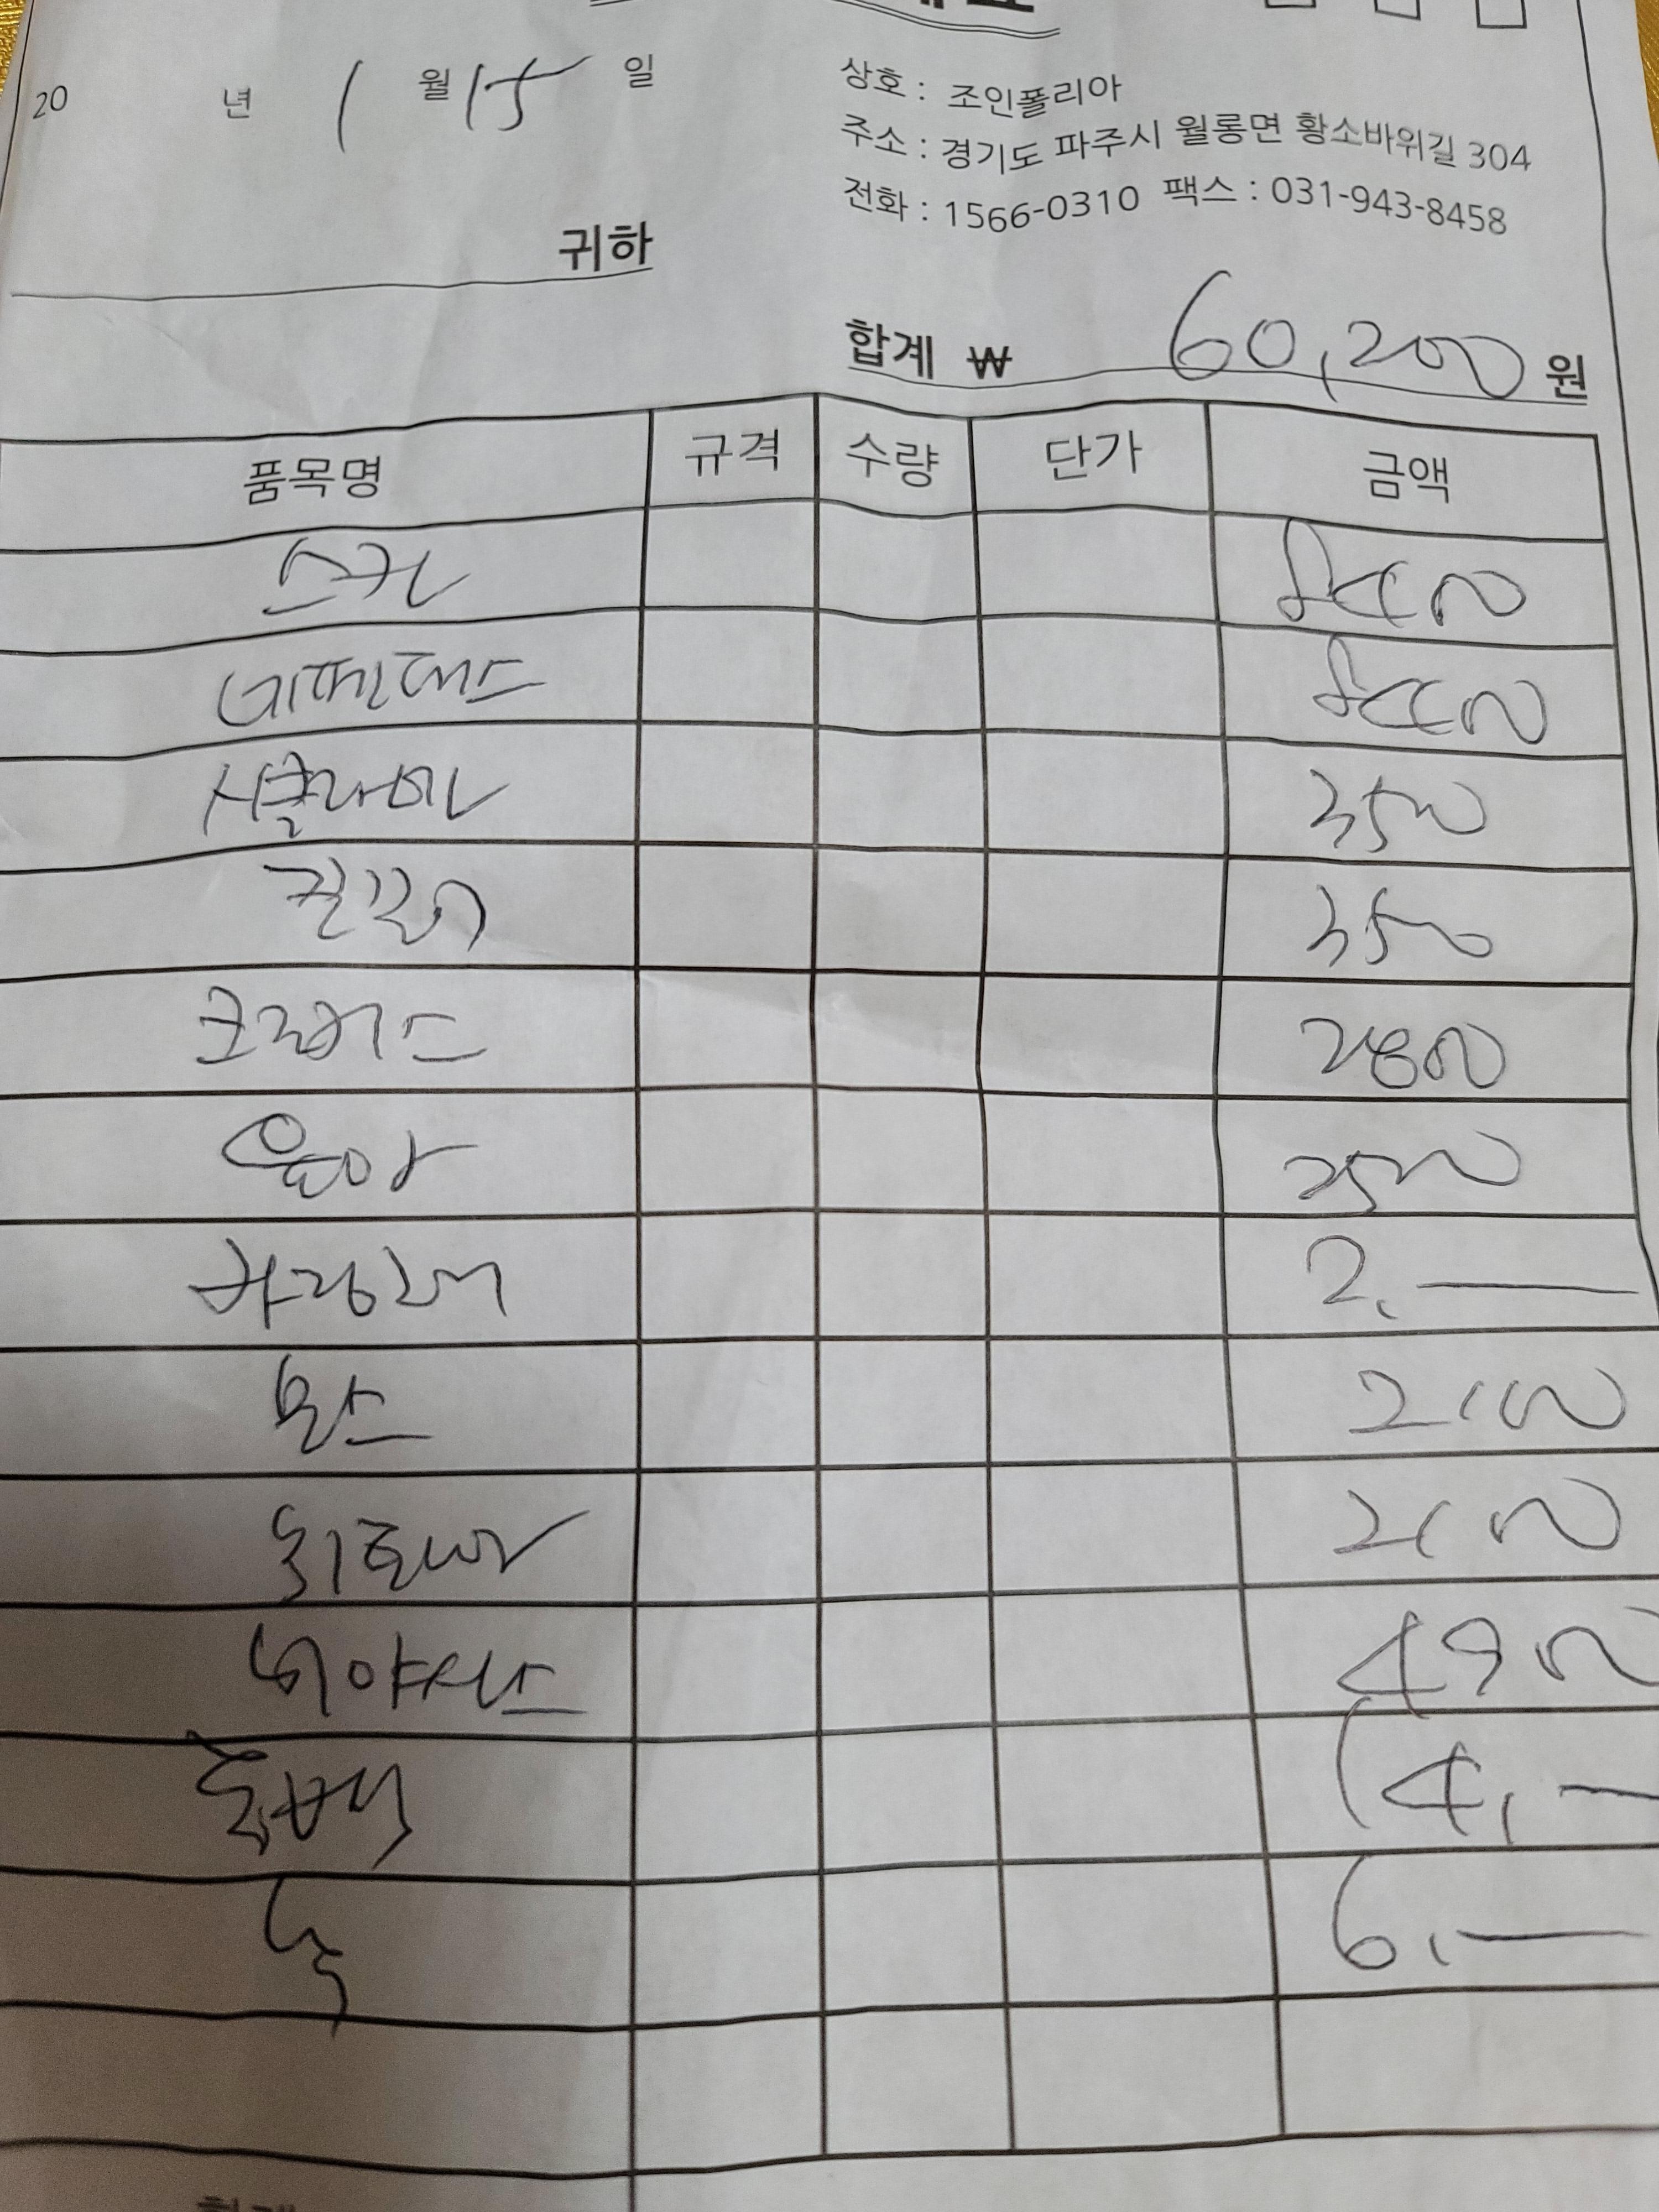 20 년 1 월 15 일
상호 : 조인폴리아
주소 : 경기도 파주시 월롱면 황소바위길 304
전화 : 1566-0310 팩스 : 031-943-8458
귀하
합계 ₩ 60,200 원
품목명 규격 수량 단가 금액
스킨 8400
네펜데스 8400
시클라멘 3500
3500
2800
율마 2500
2,—
2100
2100
히아신스 4900
동백 14,—
6,—